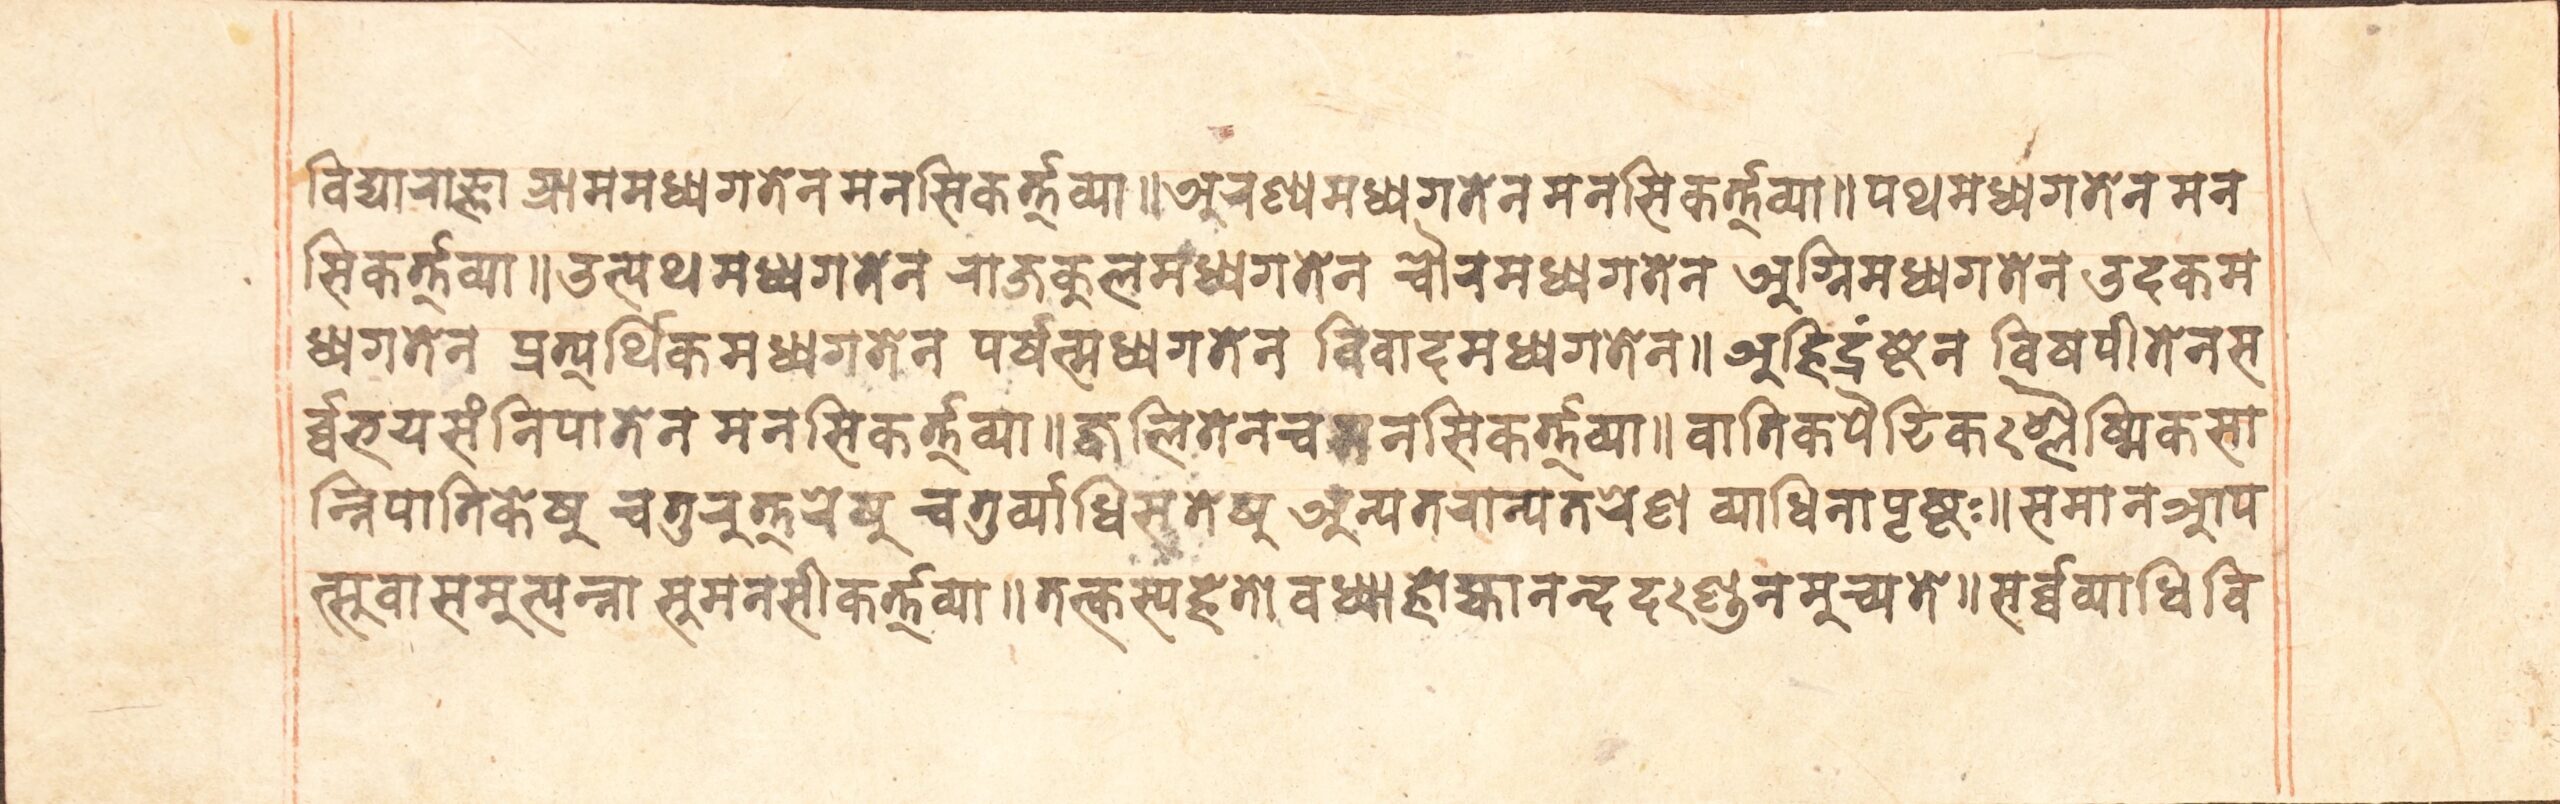 विद्याराज्ञा ग्राममध्यगतेन मनसिकर्त्तव्या॥अरण्यमध्यगतेन मनसिकर्त्तव्या॥पथमध्यगतेन मन
सिकर्त्तव्या॥उत्पथमध्यगतेन राजकुलमध्यगतेन चौरमध्यगतेन अग्निमध्यगतेन उदकम
ध्यगतेन प्रत्यर्थिकमध्यगतेन पर्षत्मध्यगतेन विवादमध्यगतेन॥अहिद्रंष्टेन विषपीतेनस
र्व्वभयसंनिपातेन मनसिकर्त्तव्या॥ज्वलितेनच मनसिकर्त्तव्या॥वातिकपैटिकःश्लैष्मिकसा
न्निपातिकेषु चतुरुत्तरेषु चतुर्व्याधिसतेषु अन्यतरान्यतरेण व्याधिनापृष्टः॥समानआप
त्सुवासमुत्पन्ना सुमनसीकर्त्तव्या॥तत्कस्यहेतो वध्यार्होह्यानन्ददःण्डनमुच्यते॥सर्व्वव्याधिवि